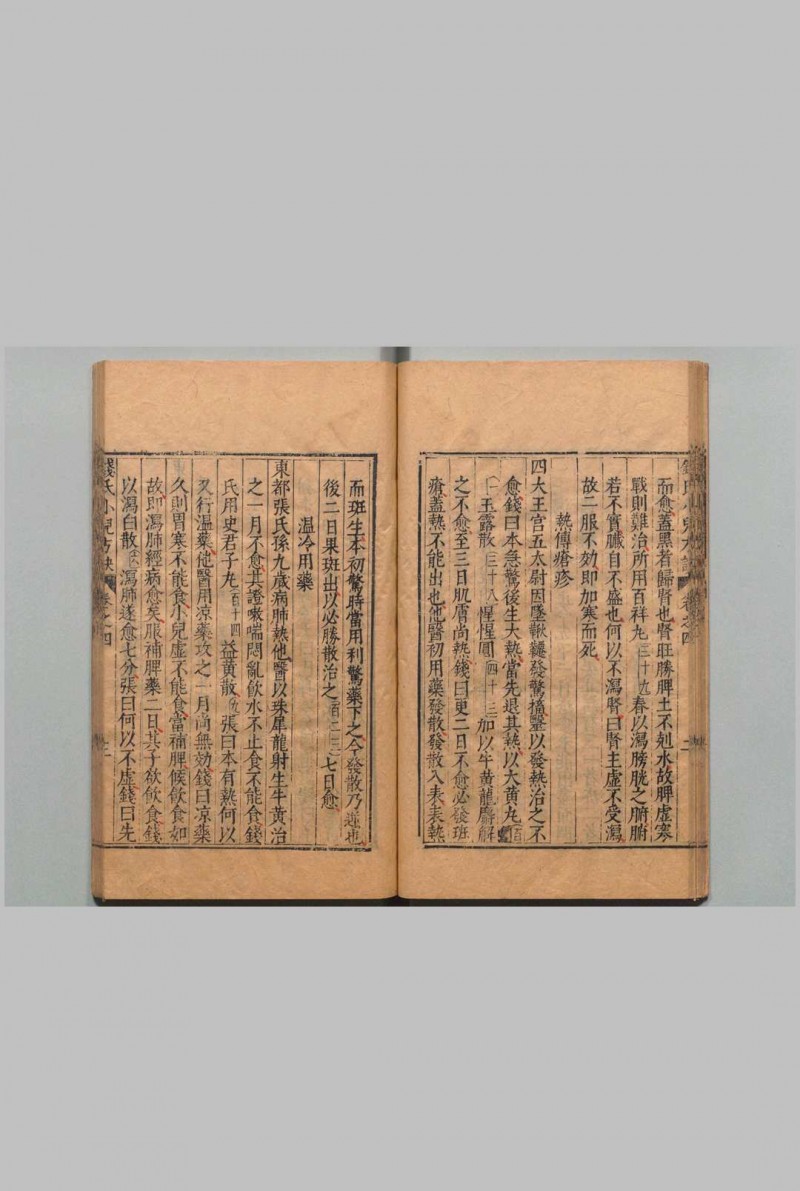 而愈蓋黑者歸腎也腎旺勝脾土不剋水故脾虛寒
戰則難治所用百祥丸三十九春以瀉膀胱之腑腑
若不實臟自不盛也何以不瀉腎曰腎主虛不受瀉
故二服不効即加寒而死
熱傳瘡疹
四大王宮五太尉因墜鞦韆發驚搐醫以發熱治之不
愈錢曰本急驚後生大熱當先退其熱以大黃丸百
一玉露散三十八惺惺圓四十三加以牛黃龍麝解
之不愈至三日肌膚尚熱錢曰更二日不愈必發班
瘡蓋熱不能出也他醫初用藥發散發散入表表熱
而班生本初驚時當用利驚藥下之今發散乃逆也
後二日果班出以必勝散治之百二三七日愈
溫冷用藥
東都張氏孫九歲病肺熱他醫以珠犀龍射生牛黃治
之一月不愈其證嗽喘悶亂飲水不止食不能食錢
氏用史君子丸百十四益黃散九張曰本有熱何以
又行溫藥他醫用凉藥攻之一月尚無効錢曰凉藥
久則胃寒不能食小兒虛不能食當補脾候飲食如
故即瀉肺經病愈矣服補脾藥二日其子欲飲食錢
以瀉白散瀉肺遂愈七分張曰何以不虛錢曰先
錢氏小兒方訣 卷之四